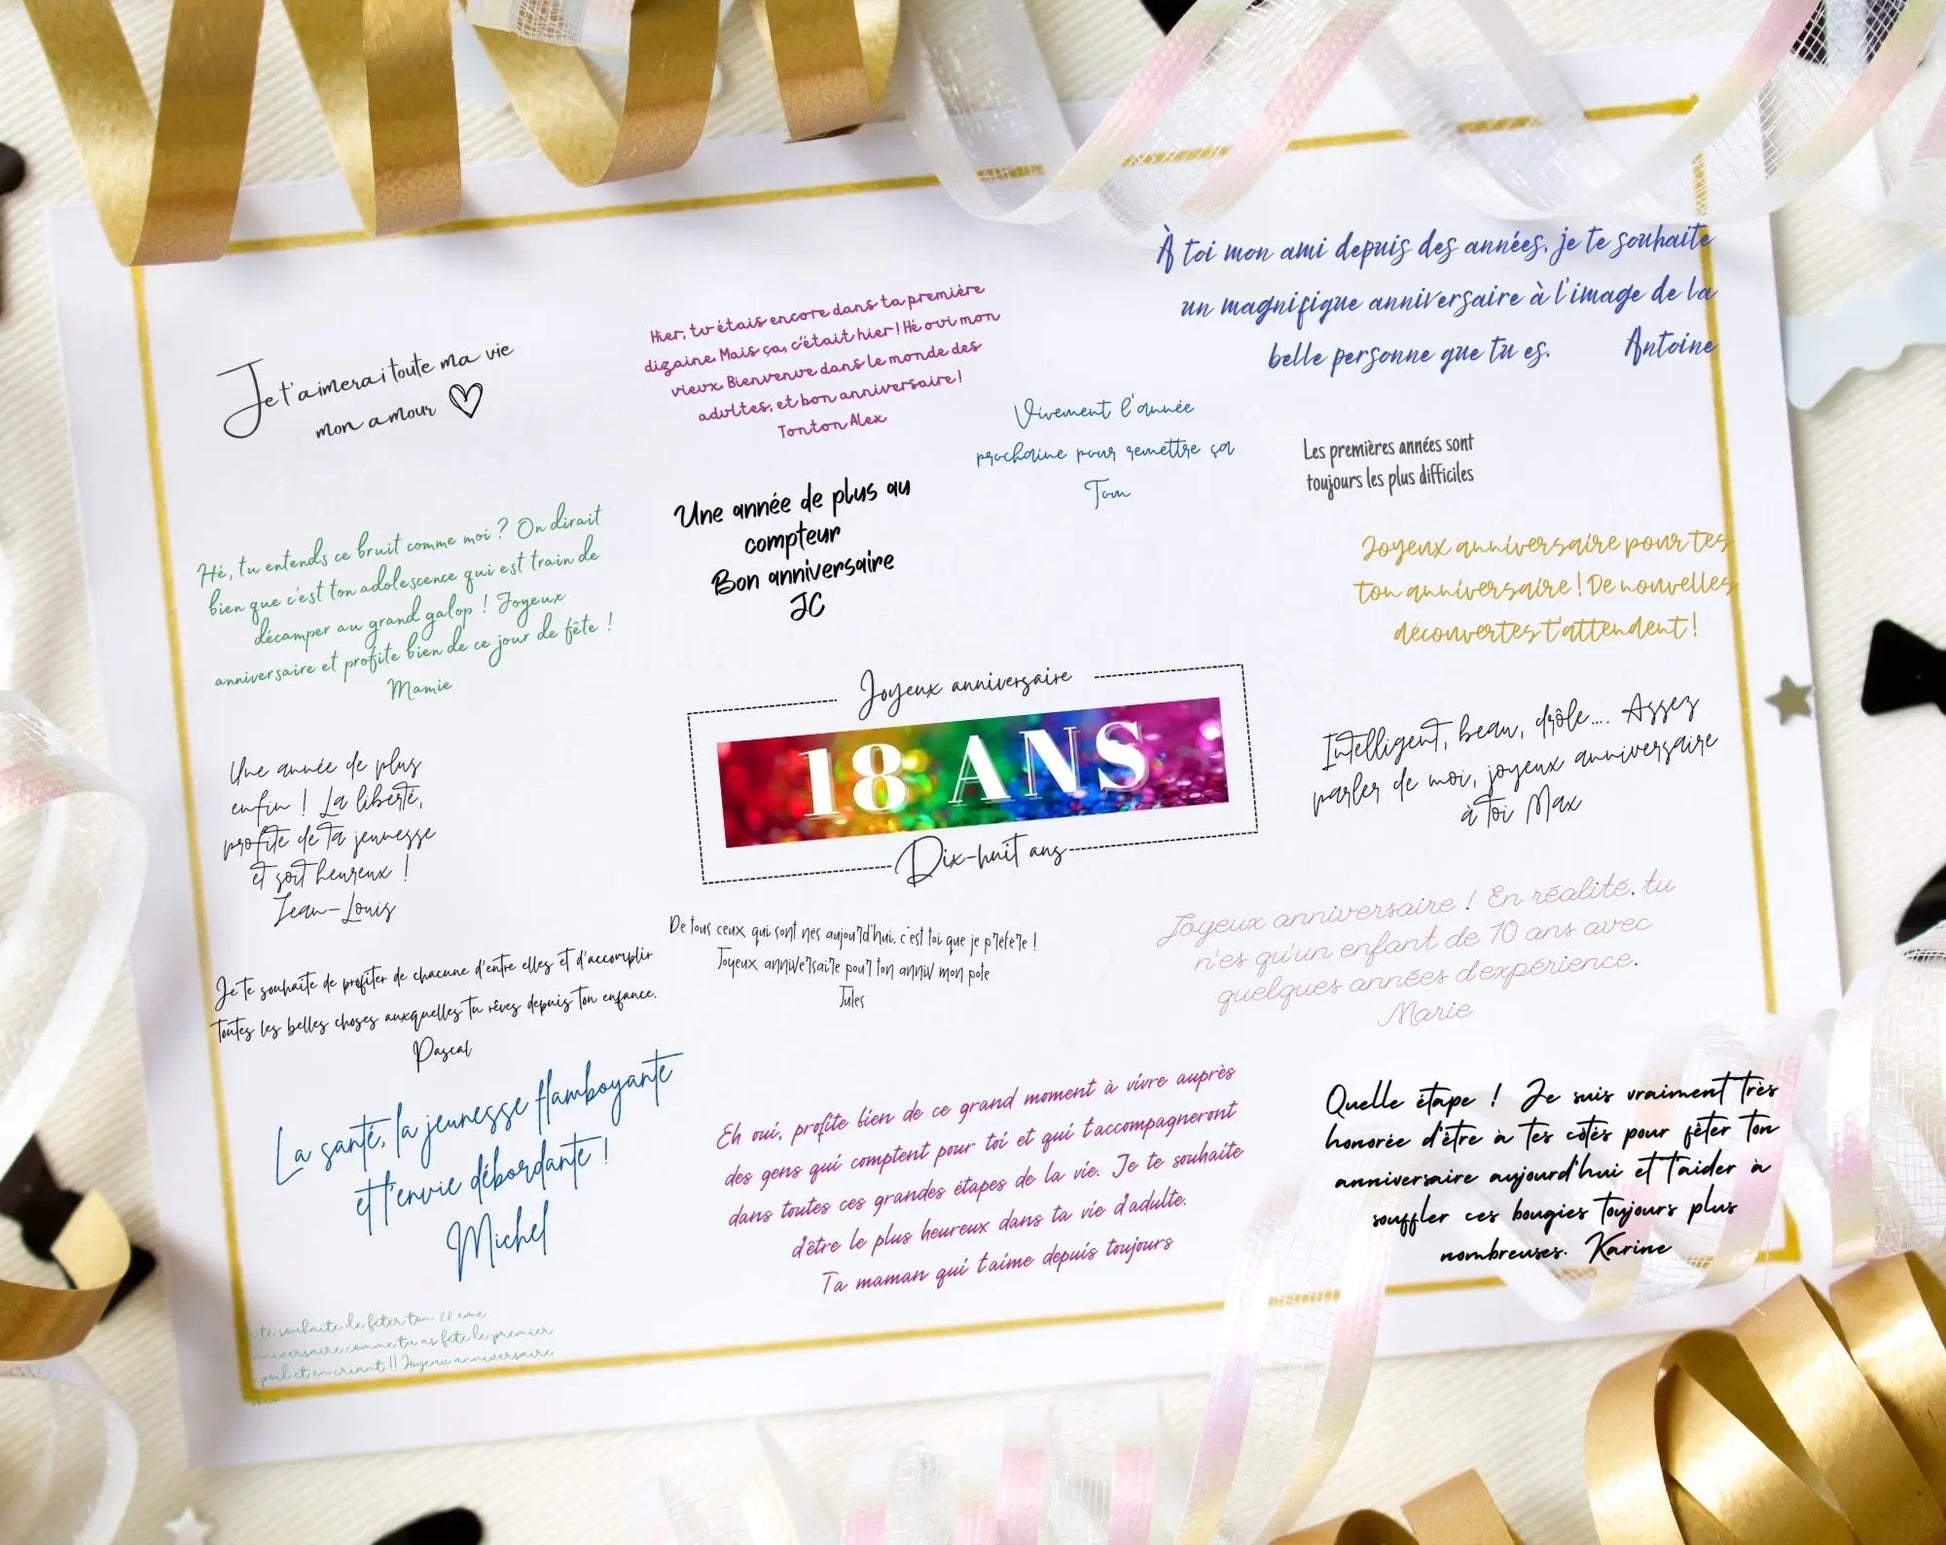 Je t'aimerai toute ma vie
mon amour
Hier, tu étais encore dans ta première
dizaine. Mais ça, c'était hier ! Hé oui mon
vieux. Bienvenue dans le monde des
adultes, et bon anniversaire !
Tonton Alex
À toi mon ami depuis des années, je te souhaite
un magnifique anniversaire à l'image de la
belle personne que tu es. Antoine
Vivement l'année
prochaine pour remettre ça
Tom
Les premières années sont
toujours les plus difficiles
Une année de plus au
compteur
Bon anniversaire
JC
Hé, tu entends ce bruit comme moi ? On dirait
bien que c'est ton adolescence qui est train de
décamper au grand galop ! Joyeux
anniversaire et profite bien de ce jour de fête !
Mamie
Joyeux anniversaire pour tes
ton anniversaire ! De nouvelles
découvertes t'attendent !
Joyeux anniversaire
18 ANS
Dix-huit ans
Intelligent, beau, drôle.... Assez
parler de moi, joyeux anniversaire
à toi Max
Une année de plus
enfin ! La liberté,
profite de ta jeunesse
et soit heureux !
Jean-Louis
De tous ceux qui sont nés aujourd'hui, c'est toi que je préfère !
Joyeux anniversaire pour ton anniv mon pote
Jules
Joyeux anniversaire ! En réalité, tu
n'es qu'un enfant de 10 ans avec
quelques années d'expérience.
Marie
Je te souhaite de profiter de chacune d'entre elles et d'accomplir
toutes les belles choses auxquelles tu rêves depuis ton enfance.
Pascal
La santé, la jeunesse flamboyante
et l'envie débordante !
Michel
Eh oui, profite bien de ce grand moment à vivre auprès
des gens qui comptent pour toi et qui t'accompagneront
dans toutes ces grandes étapes de la vie. Je te souhaite
d'être le plus heureux dans ta vie d'adulte.
Ta maman qui t'aime depuis toujours
Quelle étape ! Je suis vraiment très
honorée d'être à tes côtés pour fêter ton
anniversaire aujourd'hui et t'aider à
souffler ces bougies toujours plus
nombreuses. Karine
te souhaite de fêter ton
comme tu as fêté le premier
et en criant !! Joyeux anniversaire